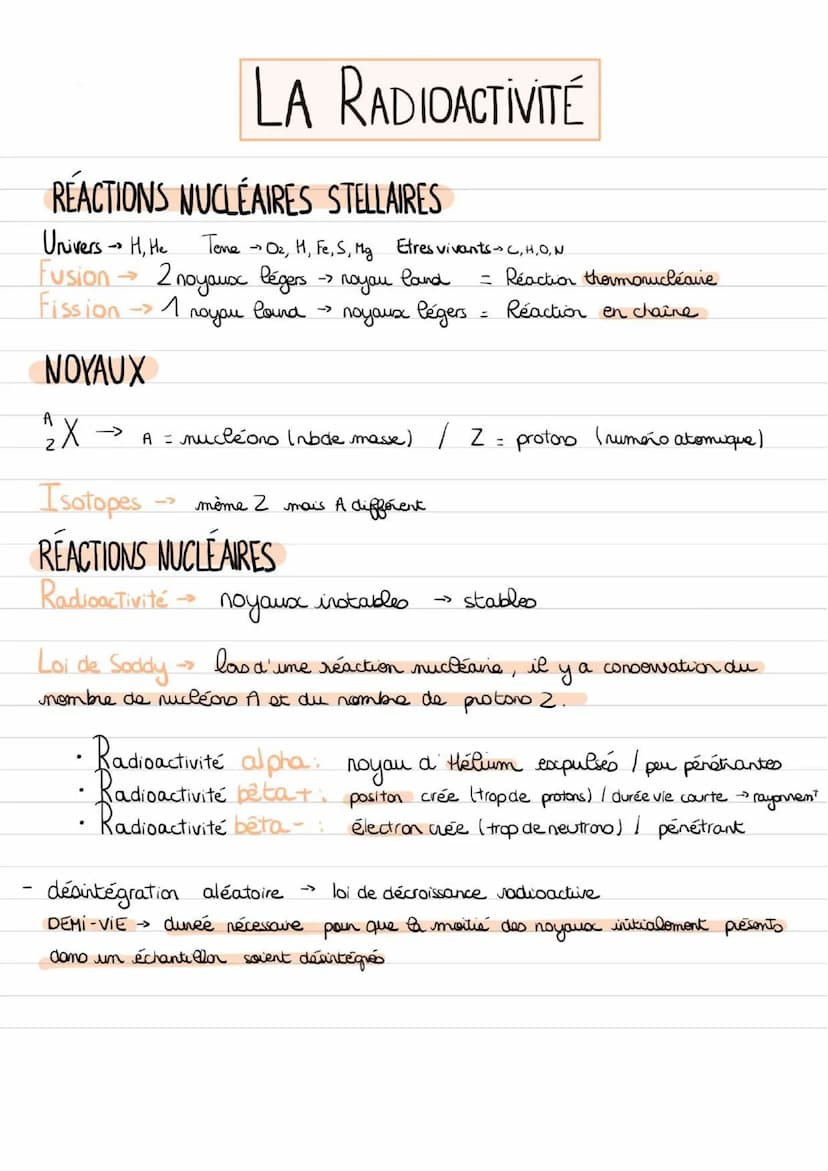 LA RADIOACTIVITÉ
RÉACTIONS NUCLÉAIRES STELLAIRES
Univers → H, He Terre → O2, H, Fe, S, Mg Etres vivants → C, H, O, N
Fusion → 2 noyaux légers → noyau lourd = Réaction thermonucléaire
Fission → 1 noyau lourd → noyaux légers = Réaction en chaîne
NOYAUX
A Z X → A = nucléons (nb de masse) / Z = protons (numéro atomique)
Isotopes → même Z mais A différent
RÉACTIONS NUCLÉAIRES
Radioactivité → noyaux instables → stables
Loi de Soddy → lors d'une réaction nucléaire, il y a conservation du
nombre de nucléons A et du nombre de protons Z.
· Radioactivité alpha : noyau d'Hélium expulsés / peu pénétrantes
· Radioactivité bêta + : positon crée (trop de protons) / durée vie courte → rayonnemt
· Radioactivité bêta - : électron crée (trop de neutrons) / pénétrant
- désintégration aléatoire → loi de décroissance radioactive
DEMI-VIE → durée nécessaire pour que la moitié des noyaux initialement présents
dans un échantillon soient désintégrés